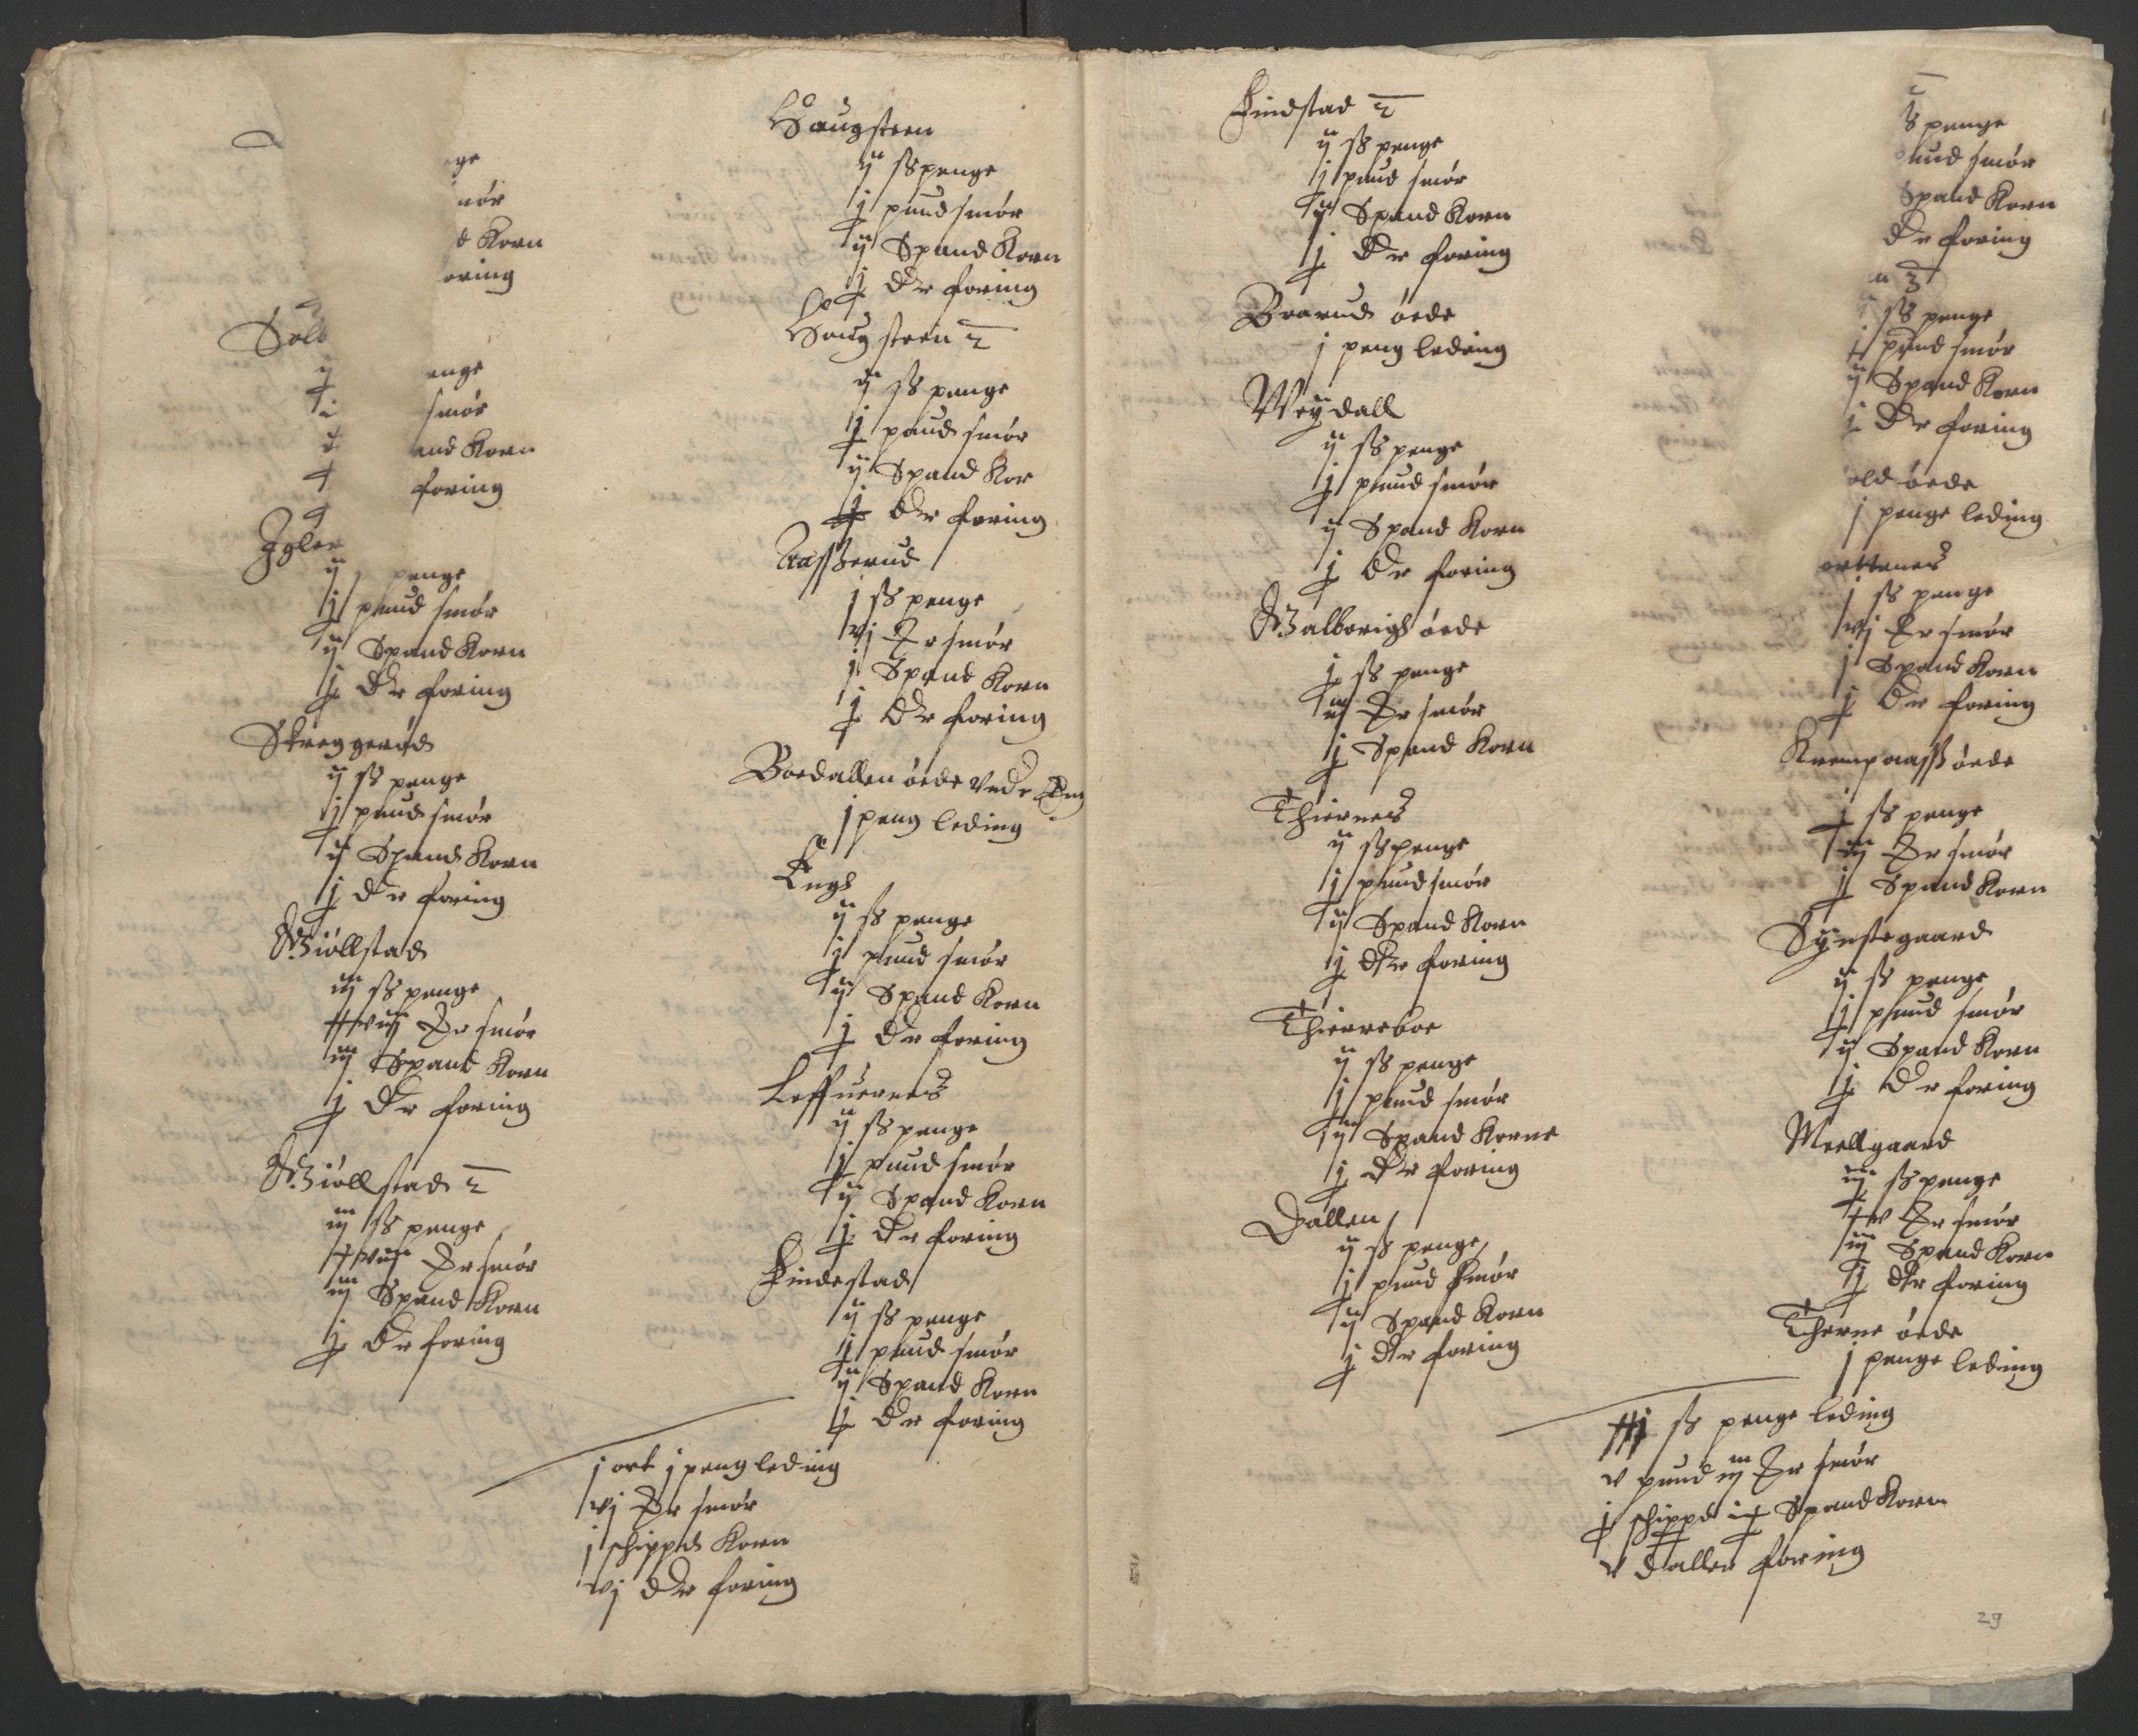 nge
mör
d Korn
oring
Solb
ij enge
j smör
ij and Korn
foring
Igler
ij penge
j pund smör
ij Spand Korn
j Dr foring
Skreggerud
ij ß penge
j pund smör
ij Spand Korn
j Dr foring
Miöllstad
iij ß penge
xviij Mr smör
iij Spand Korn
j Dr foring
Miöllstad 2
iij ß penge
xviij Mr smör
iij Spand Korn
j Dr foring
Haugsteen
ij ß penge
j pund smör
ij Spand Korn
j Dr foring
Haugsteen 2
ij ß penge
j pund smör
ij Spand Kor
j Dr foring
Aasserud
j ß penge
vj Mr smör
j Spand Korn
j Dr foring
Boedallen öede Vedr
j peng leding
Engh
ij ß penge
j pund smör
ij Spand Korn
j Dr foring
Leffuernes
ij ß penge
j pund smör
ij Spand Korn
j Dr foring
Findestad
ij ß penge
j pund smör
ij Spand Korn
j Dr foring
j ort j peng leding
vj Mr smör
j schippd Korn
vj Dr foring
Findstad 2
ij ß penge
j pund smör
ij Spand Korn
j Dr foring
Braarud öede
j peng leding
Weydall
ij ß penge
j pund smör
ij Spand Korn
j Dr foring
Walborigh öede
j ß penge
Mr smör
j Spand Korn
Thiernes
ij ß penge
j pund smör
ij Spand Korn
j Dr foring
Thierreboe
ij ß penge
j pund smör
ij Spand Korne
j Dr foring
Dallen
ij ß penge
j pund smör
ij Spand Korn
j Dr foring
2
ß penge
pund smör
Spand Korn
Dr foring
n 3
ß penge
j pund smör
ij Spand Korn
j Dr foring
old öede
j penge leding
orttenes
j ß penge
vj Mr smör
j Spand Korn
j Dr foring
Krempaass öede
j ß penge
iij Mr smör
j Spand Korn
Synstegaard
ij ß penge
j pund smör
ij Spand Korn
j Dr foring
Meellgaard
iij ß penge
xv Mr smör
iij Spand Korn
j Dr foring
Therne öede
j penge leding
xxj ß penge leding
v pund iij Mr smör
j schippd ix Spand Korn
v Daller foring
29